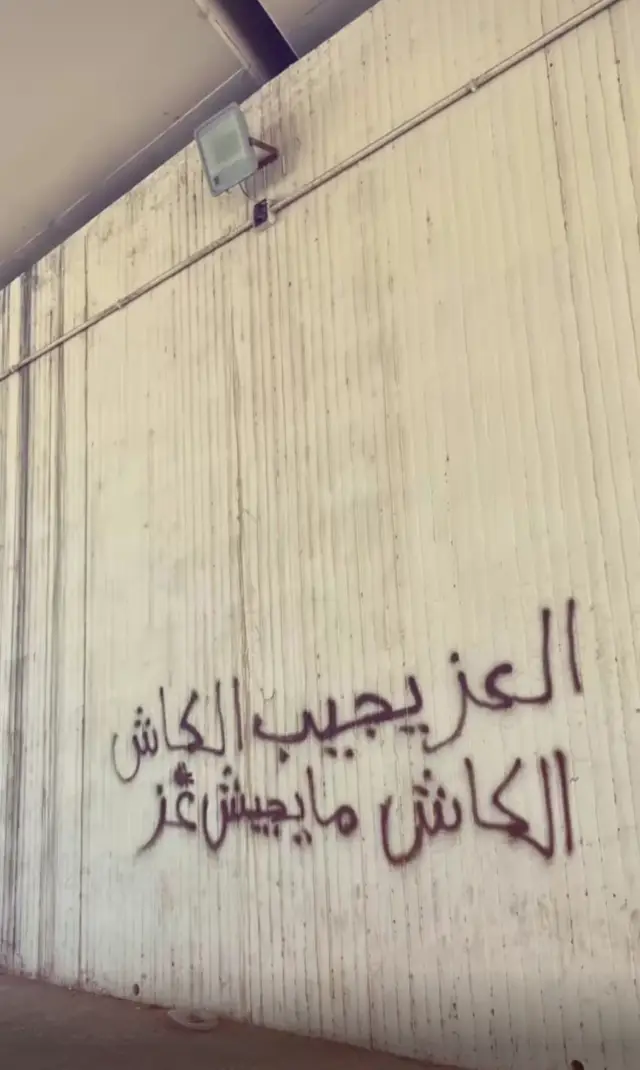 العز يجيب الكاش
الكاش مايجيبش عز